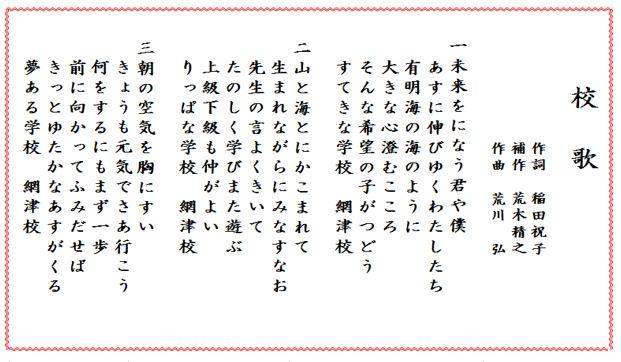 校歌
作詞 稲田祝子
補作 荒木精之
作曲 荒川 弘
一 未来をになう君や僕
あすに伸びゆくわたしたち
有明海の海のように
大きな心澄むこころ
そんな希望の子がつどう
すてきな学校 網津校
二 山と海とにかこまれて
生まれながらにみなすなお
先生の言よくきいて
たのしく学びまた遊ぶ
上級下級も仲がよい
りっぱな学校 網津校
三 朝の空気を胸にすい
きょうも元気でさあ行こう
何をするにもまず一歩
前に向かってふみだせば
きっとゆたかなあすがくる
夢ある学校 網津校